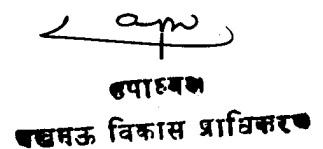 उपाध्यक्ष
लखनऊ विकास प्राधिकरण